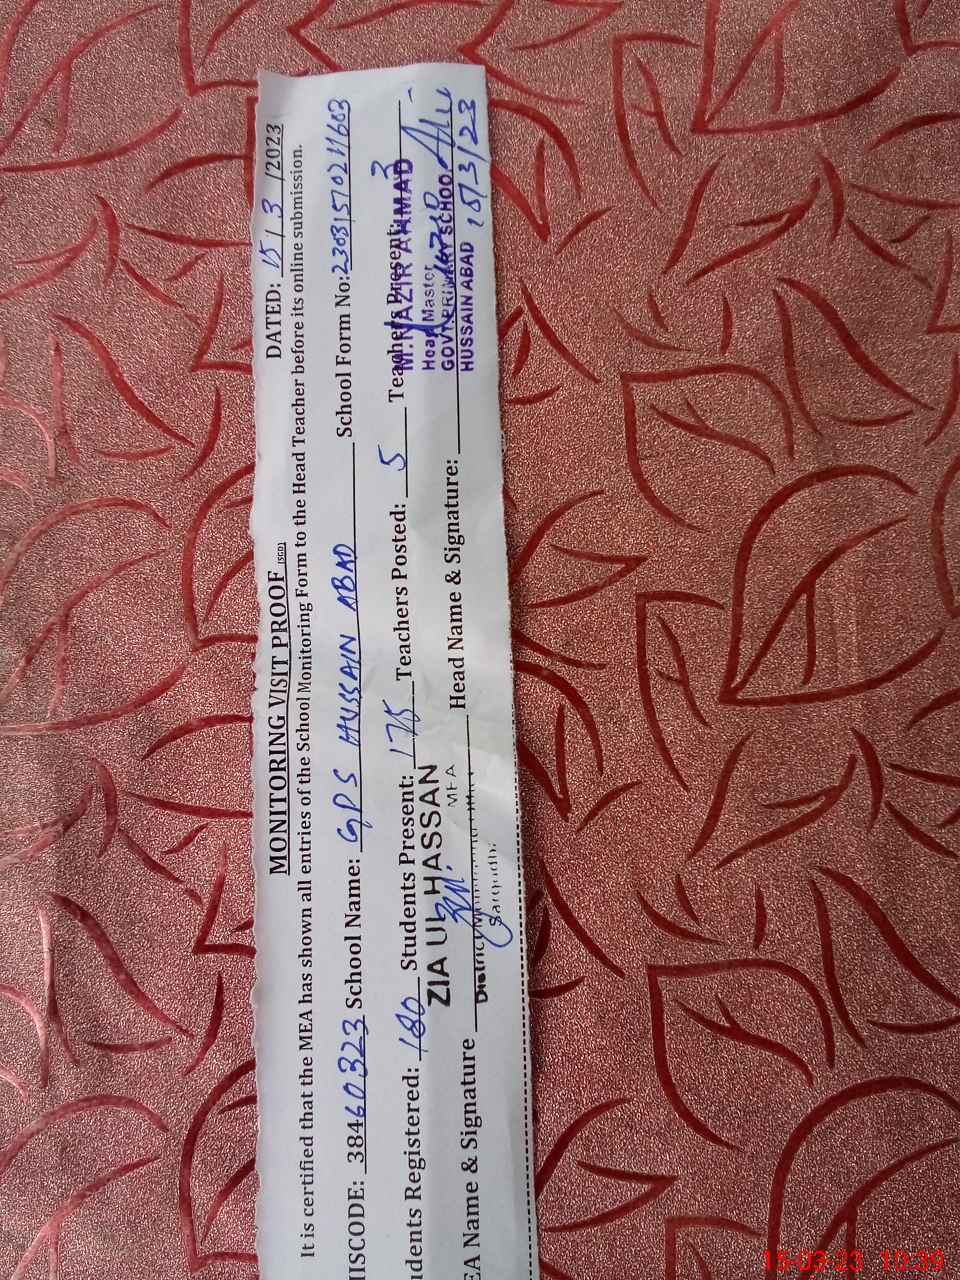 MONITORING VISIT PROOF (SGD) DATED: 15/3/2023
It is certified that the MEA has shown all entries of the School Monitoring Form to the Head Teacher before its online submission.
ISCODE: 38460323 School Name: GPS HUSSAIN ABAD School Form No: 23031570211603
udents Registered: 180 Students Present: 175 Teachers Posted: 5 Teachers Present: 3
ZIA UL HASSAN
MEA
EA Name & Signature Head Name & Signature:
District
M. NAZIR AHMAD
Head Master
GOVT. PRIMARY SCHOOL
HUSSAIN ABAD
15/3/23
15-03-23 10:39